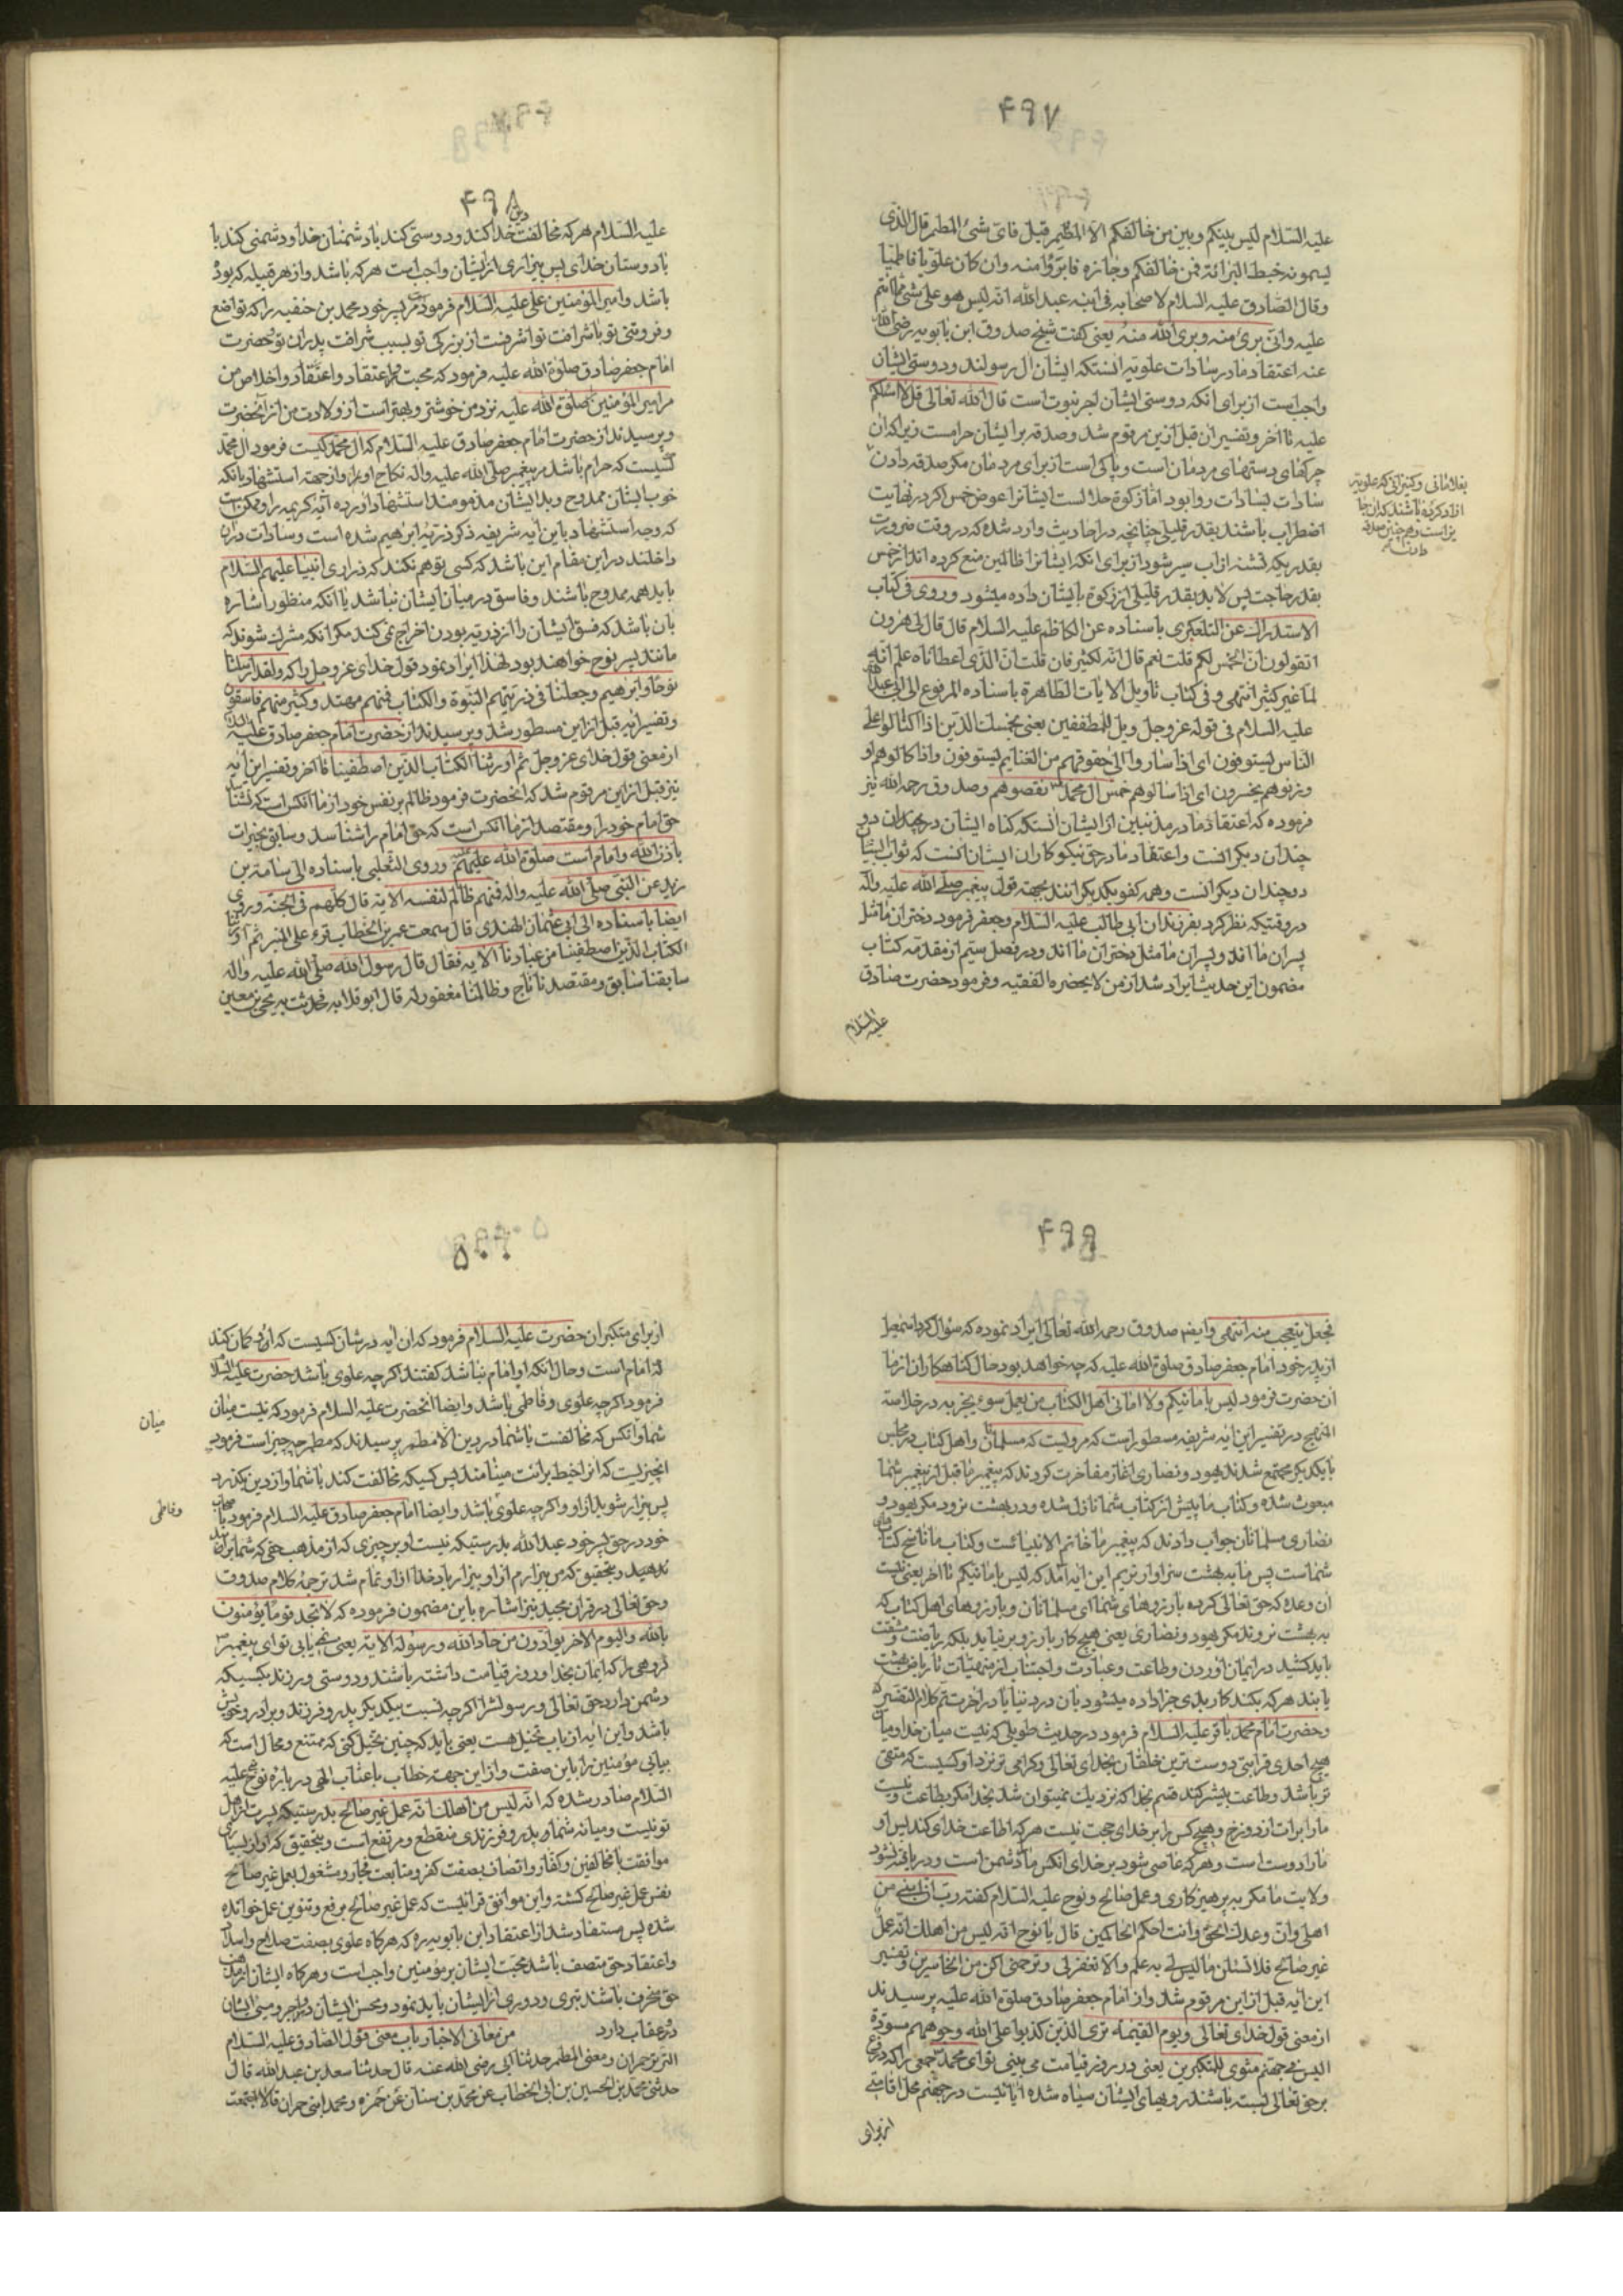 ۴۹۷
علیه السلام لیس بینکم وبین من خالفکم الا المطمر قیل فای شیٔ المطمر قال الذی
لیسمونه خیط البرائة فمن خالفکم وجازه فابرؤا منه وان کان علویا فاطمیا
وقال الصادق علیه السلام لاصحابه فی ابنه عبدالله انه لیس هو علی شیٔ مما انتم
علیه وانی بریٔ منه وبریٔ الله منه یعنی کفت شیخ صدوق ابن بابویه رضی الله
عنه اعتقاد ما در سادات علویه انستکه ایشان ال رسولند ودوستی ایشان
واجب است از برای انکه دوستی ایشان اجر نبوت است قال الله تعالی قل لا اسئلکم
علیه تا اخر وتفسیر ان قبل ازین مرقوم شد وصدقه بر ایشان حرامست زیرا که ان
چرکهای دستهای مردمان است وپاکی است از برای مردمان مکر صدقه دادن
سادات بسادات روا بود اما زکوة حلالست ایشانرا عوض خمس اکر در نهایت
اضطراب باشند بقدر قلیلی چنانچه در احادیث وارد شده که در وقت ضرورت
بقدریکه تشنه از اب سیر شود از برای انکه ایشانرا ظالمین منع کرده اند از خمس
بقدر حاجت پس لابد بقدر قلیلی از زکوة بایشان داده میشود وروی فی کتاب
الاستدراک عن التلعکبری باسناده عن الکاظم علیه السلام قال قال لی هرون
اتقولون ان الخمس لکم قلت نعم قال انه لکثیر قال قلت ان الذی اعطاناه علم انه
لنا غیر کثیر انتهی وفی کتاب تاویل الایات الطاهرة باسناده المرفوع الی ابی عبدالله
علیه السلام فی قوله عز وجل ویل للمطففین یعنی بخمسک الذین اذا اکتالوا علی
الناس یستوفون ای اذا ساروا الی حقوقهم من الغنایم یستوفون واذا کالوهم او
وزنوهم یخسرون ای اذا سالوهم خمس ال محمد نقصوهم وصدوق رحمه الله نیز
فرموده که اعتقاد ما در مذنبین از ایشان انستکه کناه ایشان در چندان دو
چندان دیکرانست واعتقاد ما در حق نیکوکاران ایشان انست که ثواب ایشان
دو چندان دیکرانست وهمه کفو یکدیکرانند بجهة قول پیغمبر صلی الله علیه واله
در وقتیکه نظر کرد بفرزندان ابی طالب علیه السلام وجعفر فرمود دختران ما مثل
پسران ما اند وپسران ما مثل دختران ما اند ودر فصل سیم از مقدمه کتاب
مضمون این حدیث ایراد شد از من لا یحضره الفقیه وفرمود حضرت صادق
علیه السلام
بغلامانی وکنیزانی که علویه
ازاد کرده باشند که ان جا
یز است وهمچنین صدقه
۴۹۸
علیه السلام هر که مخالفت دین خدا کند ودوستی کند با دشمنان خدا ودشمنی کند با
با دوستان خدای پس بیزاری از ایشان واجب است هر که باشد واز هر قبیله که بوده
باشد وامیر المؤمنین علی علیه السلام فرمود مر پسر خود محمد بن حنفیه را که تواضع
وفروتنی تو با شرافت تو اشرفست از بزرکی تو بسبب شرافت پدران تو وحضرت
امام جعفر صادق صلوة الله علیه فرمود که محبت واعتقاد واخلاص من
مر امیر المؤمنین صلوة الله علیه نزد من خوشتر وبهتر است از ولادت من از آنحضرت
وپرسیدند از حضرت امام جعفر صادق علیه السلام که ال محمد کیست فرمود ال محمد
کسیست که حرام باشد مر پیغمبر صلی الله علیه واله نکاح او را واز جهة استشهاد بانکه
خوب ایشان ممدوح وبد ایشان مذمومند استشهاد اورده آیه کریمه را وممکن است
که وجه استشهاد باین آیه شریفه ذکر ذریه ابرهیم شده است وسادات دران
داخلند در این مقام این باشد که کسی توهم نکند که ذراری انبیا علیهم السلام
باید همه ممدوح باشند وفاسق در میان ایشان نباشد یا انکه منظور اشاره
بان باشد که فسق ایشان را از ذریه بودن اخراج نمی کند مکر انکه مشرک شوند که
مانند پسر نوح خواهند بود لهذا ایراد نمود قول خدای عز وجل را که ولقد ارسلنا
نوحا وابرهیم وجعلنا فی ذریتهم النبوة والکتاب فمنهم مهتد وکثیر منهم فاسقون
وتفسیر آیه قبل از این مسطور شد وپرسیدند از حضرت امام جعفر صادق علیه السلام
از معنی قول خدای عز وجل ثم اورثنا الکتاب الذین اصطفینا تا اخر وتفسیر این آیه
نیز قبل از این مرقوم شد که انحضرت فرمود ظالم بر نفس خود از ما انکس است که نشناسد
حق امام خود را ومقتصد از ما انکس است که حق امام را شناسد وسابق بخیرات
باذن الله وامام است صلوة الله علیهم وروی الثعلبی باسناده الی اسامة بن
زید عن النبی صلی الله علیه واله فمنهم ظالم لنفسه الایة قال کلهم فی الجنة وروی
ایضا باسناده الی ابی عثمان الهندی قال سمعت عمر بن الخطاب قرء علی المنبر ثم اورثنا
الکتاب الذین اصطفینا من عبادنا الایه فقال قال رسول الله صلی الله علیه واله
سابقنا سابق ومقتصدنا ناج وظالمنا مغفور له قال ابو قلابه فحدثت به یحیی بن معین
۴۹۹
فجعل یتعجب منه انتهی وایضا صدوق رحمه الله تعالی ایراد نموده که سؤال کرد اسمعیل
از پدر خود امام جعفر صادق صلوة الله علیه که چه خواهد بود حال کناهکاران از ما
ان حضرت فرمود لیس بامانیکم ولا امانی اهل الکتاب من یعمل سوء یجز به در خلاصة
المنهج در تفسیر این آیه شریفه مسطور است که مرویست که مسلمانان واهل کتاب در مجلس
با یکدیکر مجتمع شدند یهود ونصاری اغاز مفاخرت کردند که پیغمبر ما قبل از پیغمبر شما
مبعوث شده وکتاب ما پیش از کتاب شما نازل شده ودر بهشت نرود مکر یهود و
نصاری مسلمانان جواب دادند که پیغمبر ما خاتم الانبیائست وکتاب ما ناسخ کتابهای
شماست پس ما به بهشت سزاوارتریم این آیه آمد که لیس بامانیکم تا اخر یعنی نیست
ان وعده که حق تعالی کرده بارزوهای شما ای مسلمانان وبارزوهای اهل کتاب که
به بهشت نروند مکر یهود ونصاری یعنی هیچ کار بارزو بر نیاید بلکه ریاضت ومشقت
باید کشید در ایمان اوردن وطاعت وعبادت واجتناب از منهیات تا ریاض بهشت
یابند هر که بکند کار بدی جزا داده میشود بان در دنیا یا در اخرت تم کلام التفسیر
وحضرت امام محمد باقر علیه السلام فرمود در حدیث طویلی که نیست میان خدا ومیان
هیچ احدی قرابتی دوست ترین خلقان بخدای تعالی وکرامی تر نزد او کسیست که متقی
تر باشد وطاعت بیشتر کند قسم بخدا که نزدیک نمیتوان شد بخدا مکر بطاعت ونیست
ما را برات از دوزخ وهیچ کس را بر خدای حجت نیست هر که اطاعت خدای کند پس او
ما را دوست است وهر که عاصی شود بر خدای انکس ما را دشمن است ودر یافته نشود
ولایت ما مکر به پرهیزکاری وعمل صالح ونوح علیه السلام کفته رب ان ابنی من
اهلی وان وعدک الحق وانت احکم الحاکمین قال یا نوح انه لیس من اهلک انه عمل
غیر صالح فلا تسئلن ما لیس لی به علم والا تغفر لی وترحمنی اکن من الخاسرین وتفسیر
این آیه قبل از این مرقوم شد واز امام جعفر صادق صلوة الله علیه پرسیدند
از معنی قول خدای تعالی ویوم القیمة تری الذین کذبوا علی الله وجوههم مسودة
الیس فی جهنم مثوی للمتکبرین یعنی در روز قیامت می بینی تو ای محمد جمعی را که دروغ
بر حق تعالی بسته باشند رویهای ایشان سیاه شده ایا نیست در جهنم محل اقامتی
از برای
۵۰۰
از برای متکبران حضرت علیه السلام فرمود که ان آیه در شان کسیست که او را کمان کند
که امام است وحال انکه او امام نباشد کفتند اکر چه علوی باشد حضرت علیه السلام
فرمود اکر چه علوی وفاطمی باشد وایضا انحضرت علیه السلام فرمود که نیست میان
شما وانکس که مخالفت با شما در دین الا مطمر پرسیدند که مطمر چه چیز است فرمود
انچیزیست که انرا خیط برائت مینامند پس کسیکه مخالفت کند با شما واز دین بکذرد
پس بیزار شوید از او واکر چه علوی باشد وایضا امام جعفر صادق علیه السلام فرمود باصحاب
خود در حق پسر خود عبدالله بدرستیکه نیست او بر چیزی که از مذهب حقی که شما بران
بدهید وبتحقیق که من بیزارم از او بیزار باد خدا از او تمام شد ترجمه کلام صدوق
وحق تعالی در قران مجید نیز اشاره باین مضمون فرموده که لا تجد قوما یؤمنون
بالله والیوم الاخر یوادون من حاد الله ورسوله الایة یعنی نمی یابی تو ای پیغمبر
کروهی را که ایمان بخدا وروز قیامت داشته باشند ودوستی ورزند بکسیکه
دشمن دارد حق تعالی ورسولش را اکر چه نسبت بیکدیکر پدر وفرزند وبرادر وخویش
باشد واین آیه از باب تخیل هست یعنی باید که چنین تخیل کنی که ممتنع ومحال است که
بیابی مؤمنین را باین صفت واز این جهة خطاب با عتاب الهی در باره نوح علیه
السلام صادر شده که انه لیس من اهلک انه عمل غیر صالح بدرستیکه پسرت از اهل
تو نیست ومیانه شما پدر وفرزندی منقطع ومرتفع است وبتحقیق که او از بسیاری
موافقت با مخالفین وکفار واتصاف بصفت کفر ومتابعت فجار ومشغول بعمل غیر صالح
نفس عمل غیر صالح کشته واین موافق قرائتیست که عمل غیر صالح برفع وتنوین عمل خوانده
شده پس مستفاد شد از اعتقاد ابن بابویه ره که هر کاه علوی بصفت صلاح واسلام
واعتقاد حق متصف باشد محبت ایشان بر مؤمنین واجب است وهر کاه ایشان از مذهب
حق منحرف باشند تبری ودوری از ایشان باید نمود ومحسن ایشان دو اجر ومسیٔ ایشان
دو عقاب دارد من معانی الاخبار باب معنی قول الصادق علیه السلام
التر تر حمران ومعنی المطمر حدثنا ابی رضی الله عنه قال حدثنا سعد بن عبدالله قال
حدثنی محمد بن الحسین بن ابی الخطاب عن محمد بن سنان عن حمزه ومحمد ابنی حمران قالا اجتمعنا
میان
وفاطمی